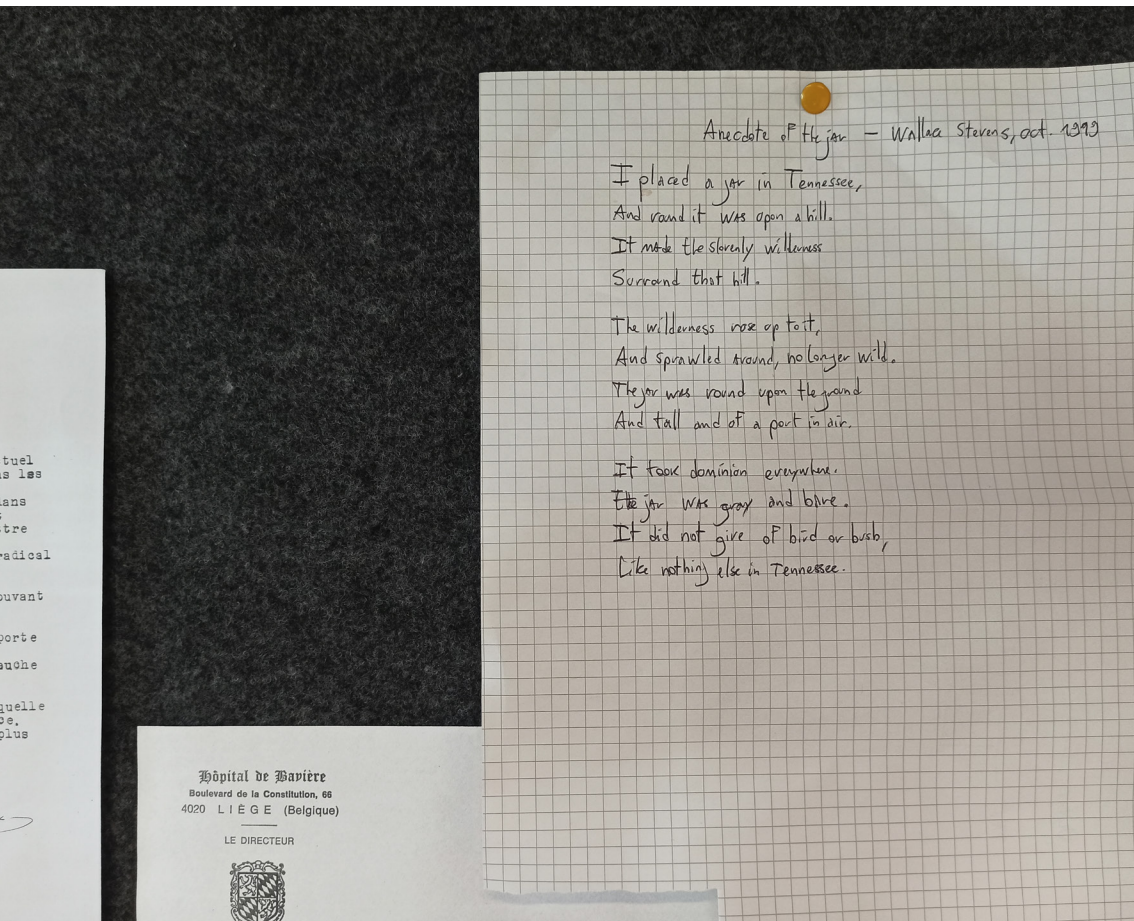 Anecdote of the jar — Wallace Stevens, oct. 1919
I placed a jar in Tennessee,
And round it was upon a hill.
It made the slovenly wilderness
Surround that hill.
The wilderness rose up to it,
And sprawled around, no longer wild.
The jar was round upon the ground
And tall and of a port in air.
It took dominion everywhere.
The jar was gray and bare.
It did not give of bird or bush,
Like nothing else in Tennessee.
tuel
s les
ans
tre
radical
ouvant
porte
auche
quelle
ce.
plus
Hôpital de Bavière
Boulevard de la Constitution, 66
4020 LIÈGE (Belgique)
LE DIRECTEUR